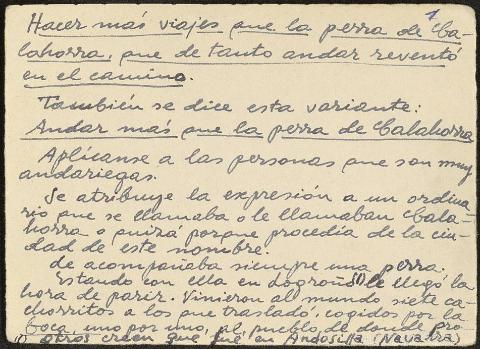 1
Hacer más viajes que la perra de Cala-
lahorra, que de tanto andar reventó
en el camino.
También se dice esta variante:
Andar más que la perra de Calahorra
Aplícanse a las personas que son muy
andariegas.
Se atribuye la expresión a un ordina
rio que se llamaba o le llamaban Cala-
horra o quizá porque procedía de la ciu-
dad de este nombre.
de acompañaba siempre una perra.
Estando con ella en Logroño (1) le llegó la
hora de parir. Vinieron al mundo siete ca-
chorritos a los que trasladó, cogidos por la
boca, uno por uno, al pueblo de donde pro
(1) otros creen que fué en Andosilla (Navarra)